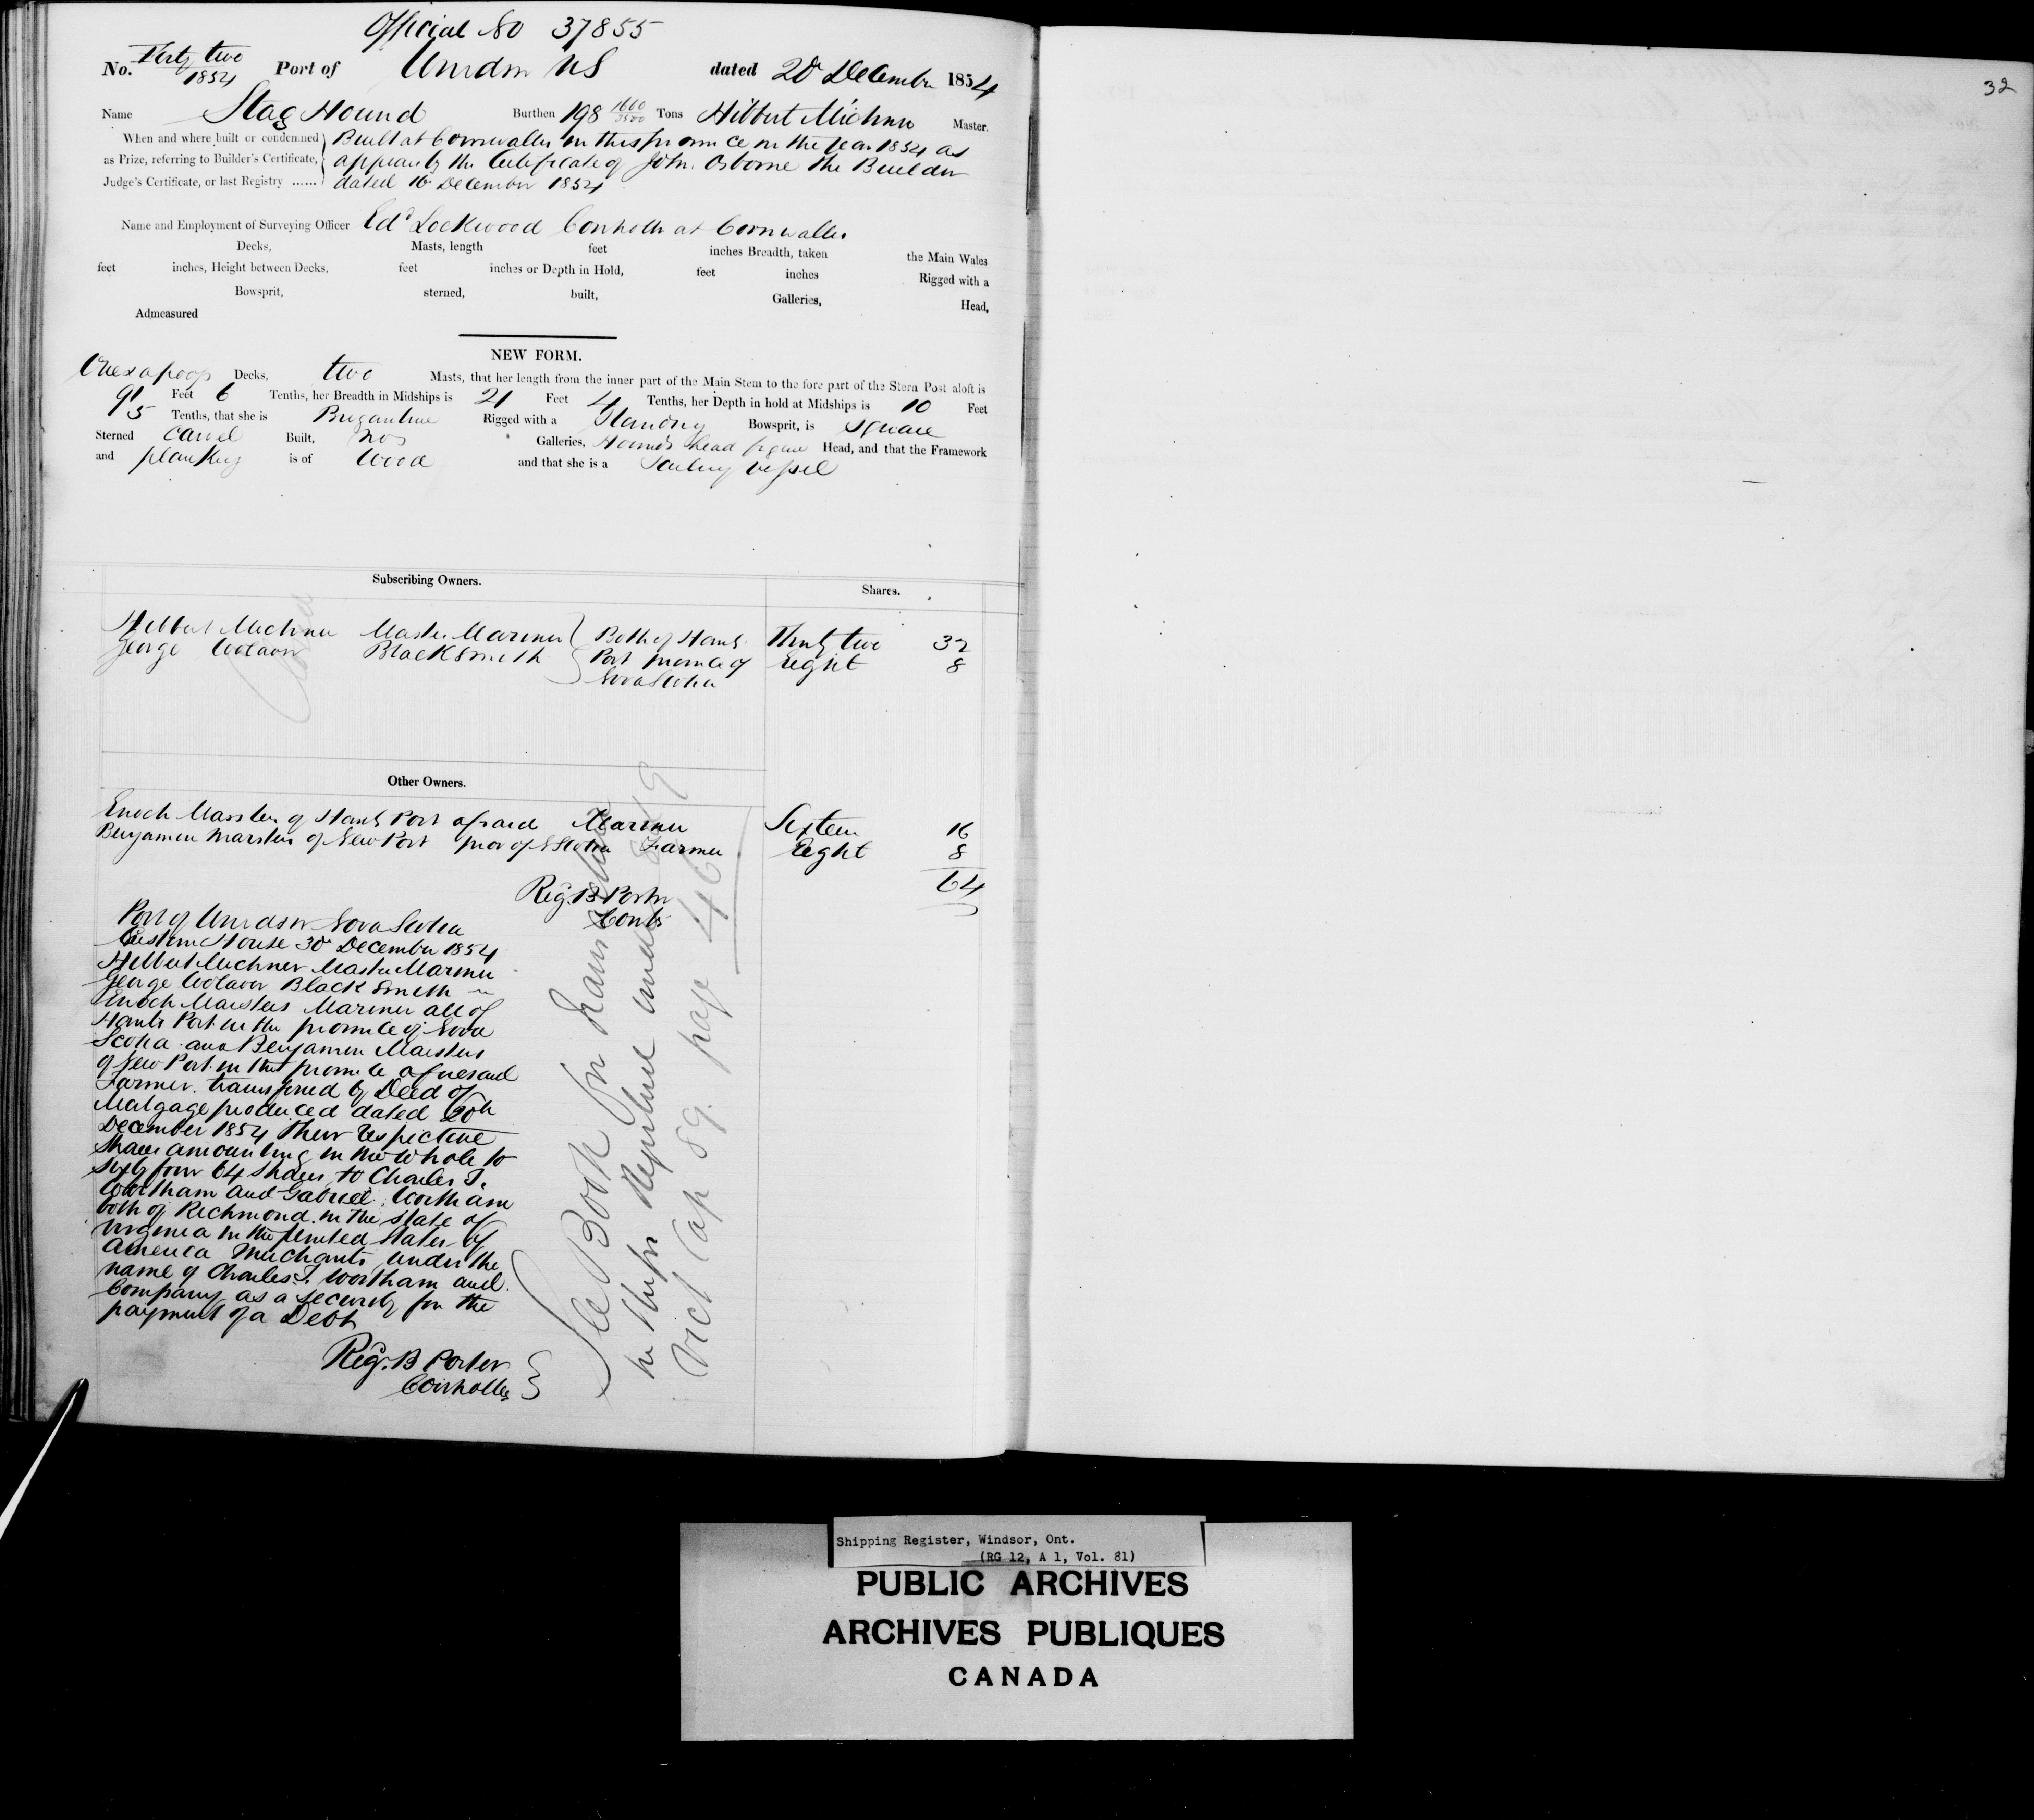 Official No 37855
No. Forty two 1854 Port of Windsor NS dated 20 December 1854
32
Name Stag Hound Burthen 198 1660/3500 Tons Hibbert Michner Master.
When and where built or condemned as Prize, referring to Builder's Certificate, Judge's Certificate, or last Registry ......
Built at Cornwallis in this province in the year 1854 as
appears by the Certificate of John Osborne the Builder
dated 16 December 1854
Name and Employment of Surveying Officer Edd Lockwood Controller at Cornwallis
Decks, Masts, length feet inches Breadth, taken the Main Wales
feet inches, Height between Decks, feet inches or Depth in Hold, feet inches Rigged with a
Bowsprit, sterned, built, Galleries, Head,
Admeasured
NEW FORM.
One & a poop Decks, two Masts, that her length from the inner part of the Main Stem to the fore part of the Stern Post aloft is
91 Feet 6 Tenths, her Breadth in Midships is 21 Feet 4 Tenths, her Depth in hold at Midships is 10 Feet
5 Tenths, that she is Brigantine Rigged with a Standing Bowsprit, is square
Sterned carvel Built, no Galleries, Hounds head figure Head, and that the Framework
and planking is of Wood and that she is a Sailing vessel
Subscribing Owners. Shares.
Hibbert Michner Master Mariner Both of Hants Thirty two 32
George Blacksmith Port province of Eight 8
Nova Scotia
Other Owners.
Enoch Marsters of Hants Port afsaid Mariner Sixteen 16
Benjamin Marsters of New Port prov of N Scotia Farmer Eight 8
64
Reg. B Porter
Contr
Port of Windsor Nova Scotia
Custom House 30 December 1854
Hibbert Michner Master Mariner
George Black Smith
Enoch Marsters Mariner all of
Hants Port in the province of Nova
Scotia and Benjamin Marsters
of New Port in the province aforesaid
Farmer. transferred by Deed of
Matgage produced dated 20th
December 1854 their respective
shares amounting in the whole to
sixty four 64 shares to Charles T.
Wortham and Gabriel Wortham
both of Richmond in the State of
Virginia in the United States of
America Merchants under the
name of Charles T Wortham and
Company as a security for the
payment of a Debt
Reg. B Porter
Controller
See Book for transactions
in Ships Registered under 8 & 9
Vict Cap 89. page 46
Shipping Register, Windsor, Ont.
(RG 12, A 1, Vol. 81)
PUBLIC ARCHIVES
ARCHIVES PUBLIQUES
CANADA